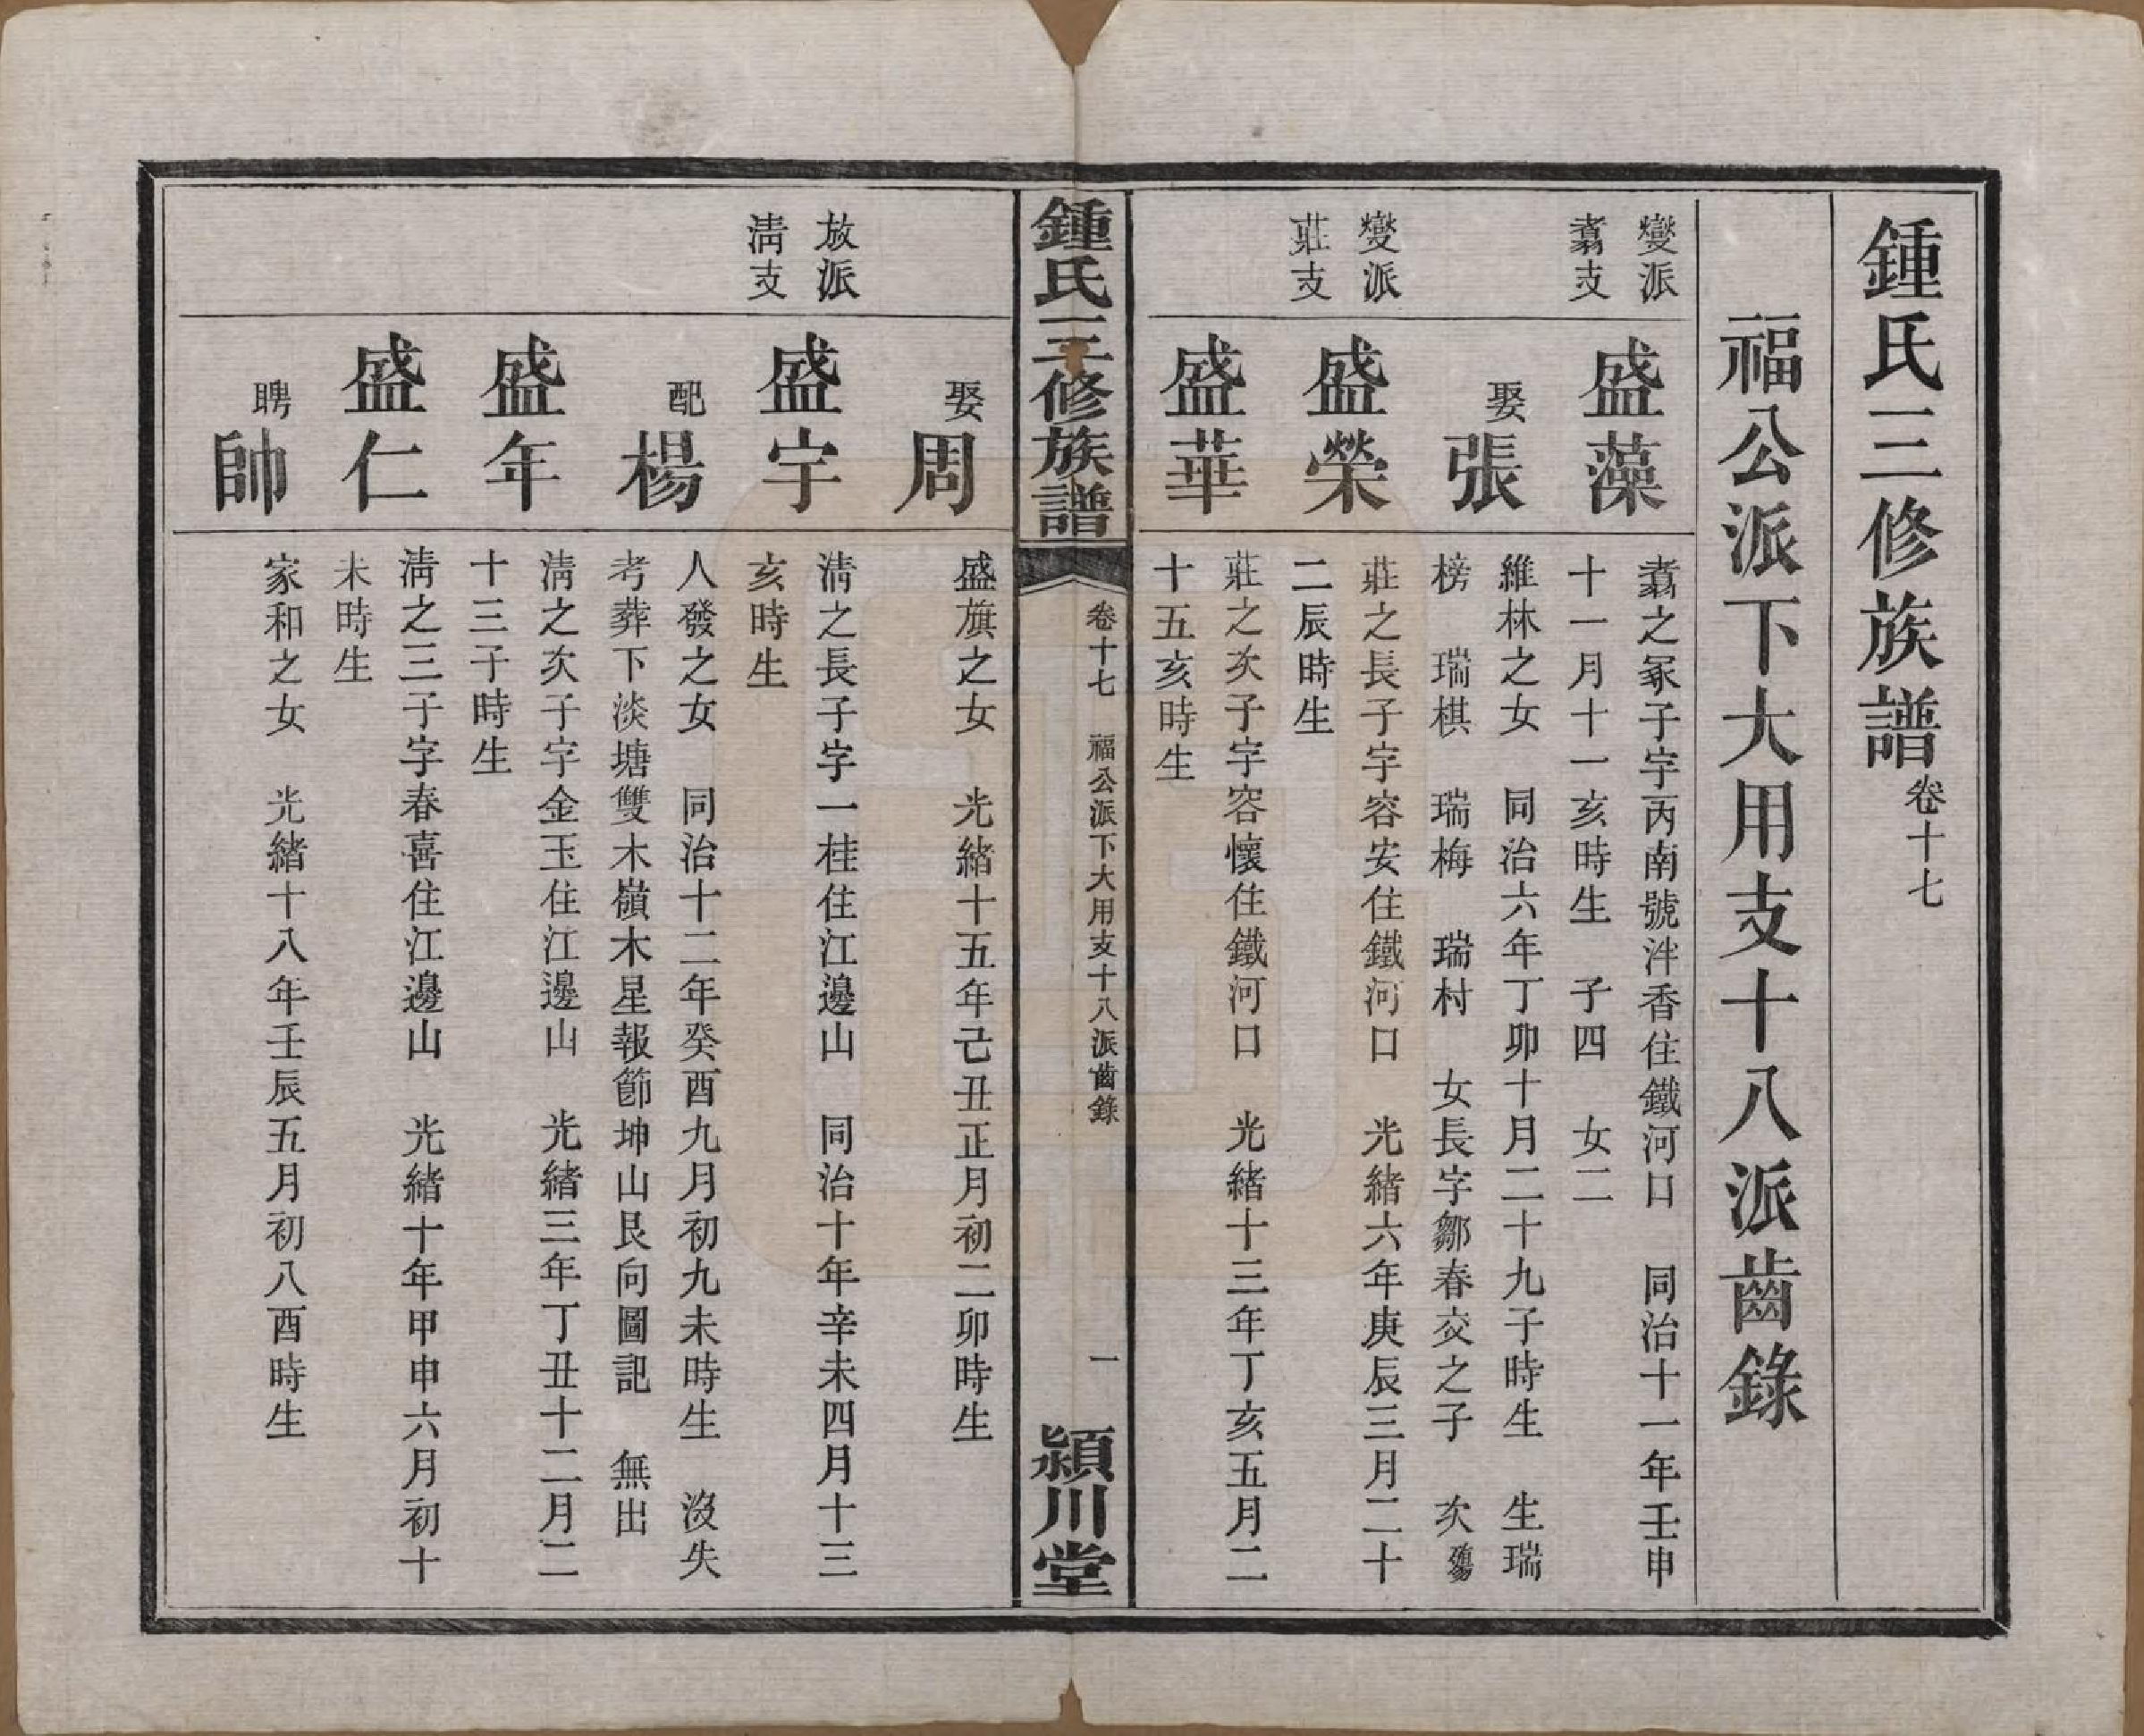 鍾氏三修族譜卷十七
福公派下大用支十八派齒錄
燮派
翥支
盛藻
翥之冢子字丙南號泮香住鐵河口　同治十一年壬申
十一月十一亥時生　子四　女二
娶張
維林之女　同治六年丁卯十月二十九子時生　生瑞
榜　瑞棋　瑞梅　瑞村　女長字鄒春交之子　次殤
燮派
莊支
盛榮
莊之長子字容安住鐵河口　光緒六年庚辰三月二十
二辰時生
盛華
莊之次子字容懷住鐵河口　光緒十三年丁亥五月二
十五亥時生
鍾氏三修族譜
卷十七　福公派下大用支十八派齒錄
一
潁川堂
娶周
盛旗之女　光緒十五年己丑正月初二卯時生
放派
淸支
盛宇
淸之長子字一桂住江邊山　同治十年辛未四月十三
亥時生
配楊
人發之女　同治十二年癸酉九月初九未時生　沒失
考葬下淡塘雙木嶺木星報節坤山艮向圖記　無出
盛年
淸之次子字金玉住江邊山　光緒三年丁丑十二月二
十三子時生
盛仁
淸之三子字春喜住江邊山　光緒十年甲申六月初十
未時生
聘帥
家和之女　光緒十八年壬辰五月初八酉時生